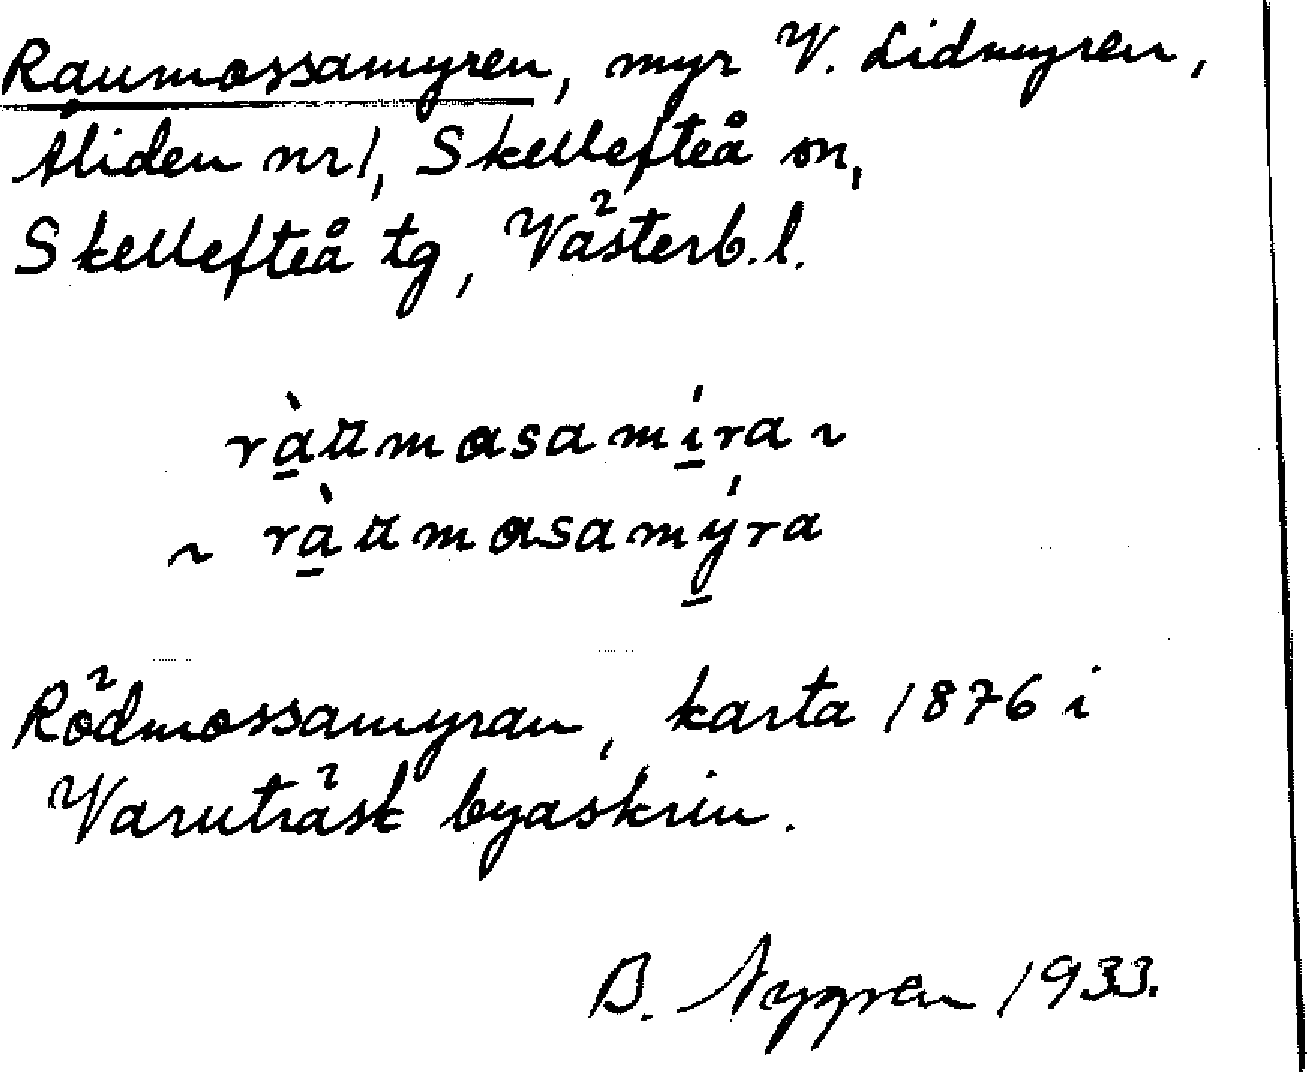 Raumossamyren, myr V. Lidmyren,
Åliden nr 1, Skellefteå sn,
Skellefteå tg, Västerb. l.
ràu̯masamíra ~
~ ràu̯masamýra
Rödmossamyran, karta 1876 i
Varuträsk byaskrin.
B. Nygren 1933.